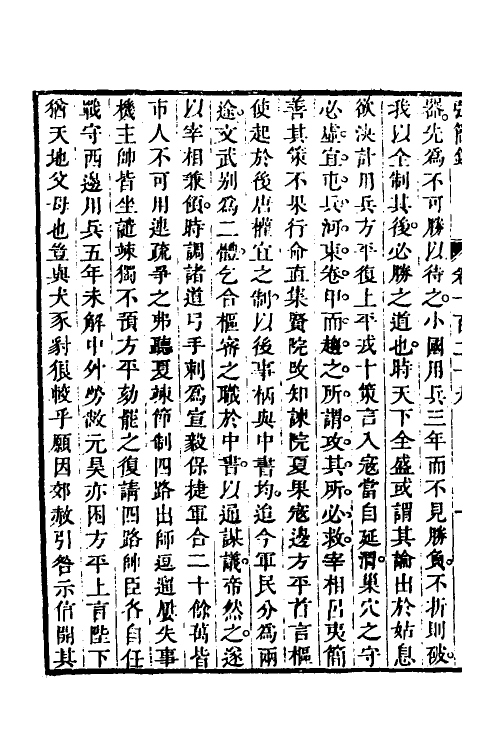 器先為不可勝以待之小國用兵三年而不見勝負不折則破
我以全制其後必勝之道也時天下全盛或謂其論出於姑息
欲決計用兵方平復上平戎十策言入寇當自延渭巢穴之守
必虛宜屯兵河東卷甲而趨之所謂攻其所必救宰相呂夷簡
善其策不果行命直集賢院改知諫院夏果寇邊方平首言樞
使起於後唐權宜之制以後事柄與中書均迨今軍民分為兩
途文武別為二體乞合樞密之職於中書以通謀議帝然之遂
以宰相兼領時調諸道弓手刺為宣毅保捷軍合二十餘萬皆
市人不可用連疏爭之弗聽夏竦節制四路出師逗遛屢失事
機主帥皆坐譴竦獨不預方平劾罷之復請四路帥臣各自任
戰守西邊用兵五年未解中外勞敝元昊亦困方平上言陛下
猶天地父母也豈與犬豕豺狼較乎願因郊赦引咎示信開其